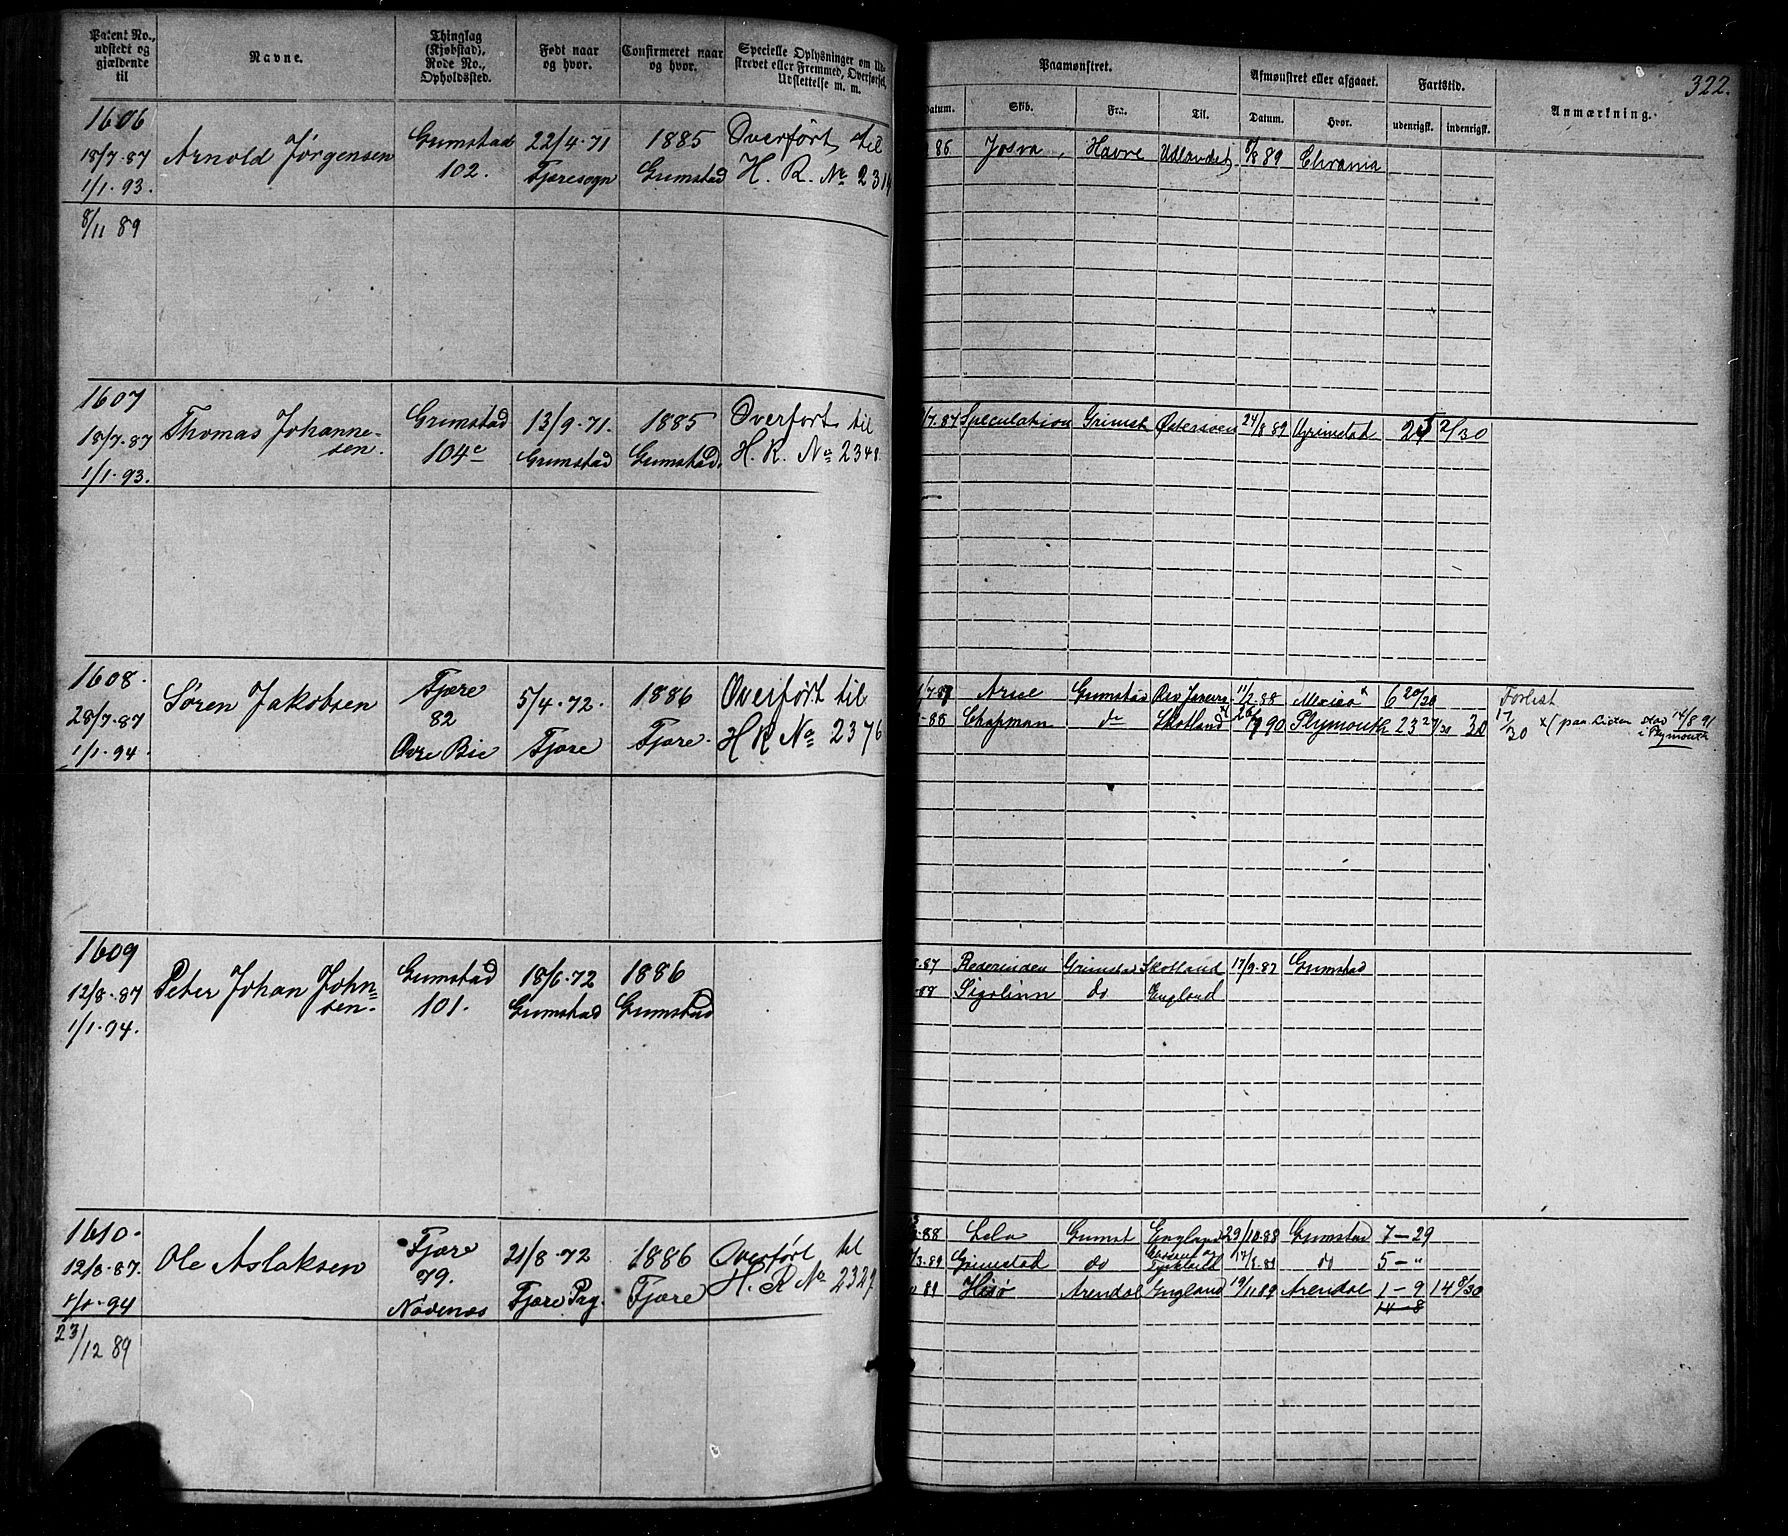 Patent No., udstedt og gjældende til
Navne.
Thinglag (Kjøbstad), Rode No., Opholdssted.
Født naar og hvor.
Confirmeret naar og hvor.
Specielle Oplysninger om Udskrevet eller Fremmed, Overførsel, Udslettelse m. m.
Paamønstret.
Datum.
Skib.
Fra.
Til.
Afmønstret eller afgaaet.
Datum.
Hvor.
Fartstid.
udenrigsk.
indenrigsk.
Anmærkning.
322.
1606
18/7·87
1/1·93.
8/11 89
Arnold Jørgensen
Grimstad
102.
22/4·71
Fjæresogn
1885
Grimstad
Overført til
H. R. No 231
86 Josva Havre Udlandet 6/8 89 Chrania
1607
18/7·87
1/1·93.
Thomas Johanne-
sen.
Grimstad
104c
13/9·71.
Grimstad
1885
Grimstad.
Overført til
H. R. No 2348
/7.87 Speculation Grimst Østersøen 24/8 89 Grimstad 25 2/30
1608.
28/7·87
1/1·94.
Søren Jakobsen
Fjære
82
Øvre Bie
5/4·72.
Fjære
1886
Fjære.
Overført til
H R No 2376
/7.87 Grimstad 11/2.88 Mexico x 6 20/30 Forlist
88 Chapman do Skotland x 90 Plymouth 23 30 17/30 x/ paa Siden 14/8 91
i Plymouth
1609
12/8·87
1/1·94.
Peter Johan John=
sen.
Grimstad
101.
18/6·72
Grimstad
1886
Grimstad
8.87 Grimstad Skotland 17/9.87 Grimstad
Sigolinn do England
1610.
12/8·87.
1/1·94
23/12 89
Ole Aslaksen
Fjære
79.
21/8·72
Fjære Prg.
1886
Fjære
Overført til
H. R No 2327
88 Lela Grimst England 29/10.88 Grimstad 7–29
/3.89 Grimstad do do 5–"
89 Hisø Arendal England 19/11 89 Arendal 1–9 14 8/30
14–8